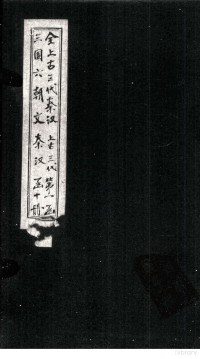 全上古三代秦汉
三国六朝文 秦汉
上古三代 第一函
函十册